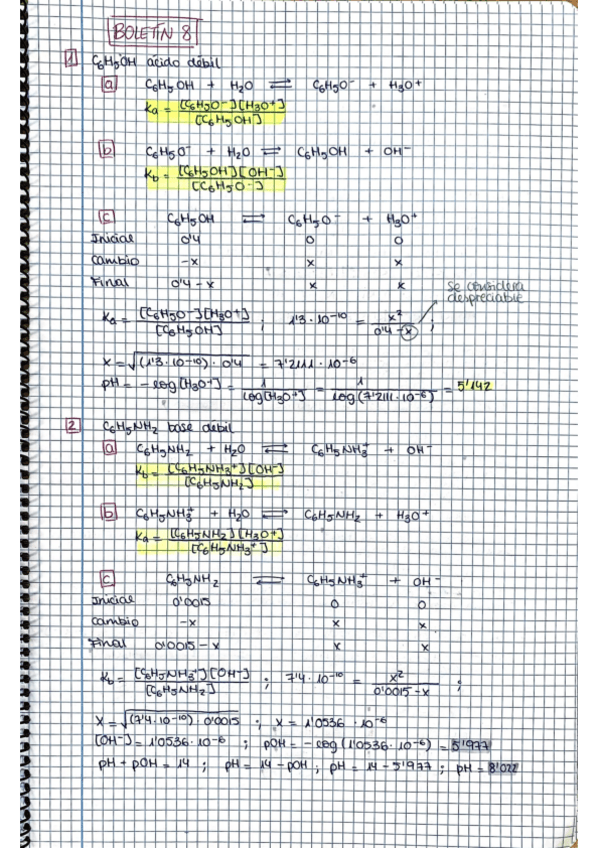 BOLETÍN 8
1 C6H5OH ácido débil
a C6H5OH + H2O ⇌ C6H5O⁻ + H3O+
Ka = [C6H5O⁻][H3O+] / [C6H5OH]
b C6H5O⁻ + H2O ⇌ C6H5OH + OH⁻
Kb = [C6H5OH][OH⁻] / [C6H5O⁻]
c C6H5OH ⇌ C6H5O⁻ + H3O+
Inicial 0'4 0 0
Cambio -x x x
Final 0'4-x x x
se considera
despreciable
Ka = [C6H5O⁻][H3O+] / [C6H5OH] ; 1'3·10⁻¹⁰ = x² / 0'4-x ;
x = √(1'3·10⁻¹⁰)·0'4 = 7'2111·10⁻⁶
pH = -log[H3O+] = 1 / log[H3O+] = 1 / log(7'2111·10⁻⁶) = 5'142
2 C6H5NH2 base débil
a C6H5NH2 + H2O ⇌ C6H5NH3⁺ + OH⁻
Kb = [C6H5NH3⁺][OH⁻] / [C6H5NH2]
b C6H5NH3⁺ + H2O ⇌ C6H5NH2 + H3O+
Ka = [C6H5NH2][H3O+] / [C6H5NH3⁺]
c C6H5NH2 ⇌ C6H5NH3⁺ + OH⁻
Inicial 0'0015 0 0
Cambio -x x x
Final 0'0015-x x x
Kb = [C6H5NH3⁺][OH⁻] / [C6H5NH2] ; 7'4·10⁻¹⁰ = x² / 0'0015-x ;
x = √(7'4·10⁻¹⁰)·0'0015 ; x = 1'0536·10⁻⁶
[OH⁻] = 1'0536·10⁻⁶ ; pOH = -log(1'0536·10⁻⁶) = 5'977
pH + pOH = 14 ; pH = 14 - pOH ; pH = 14 - 5'977 ; pH = 8'022